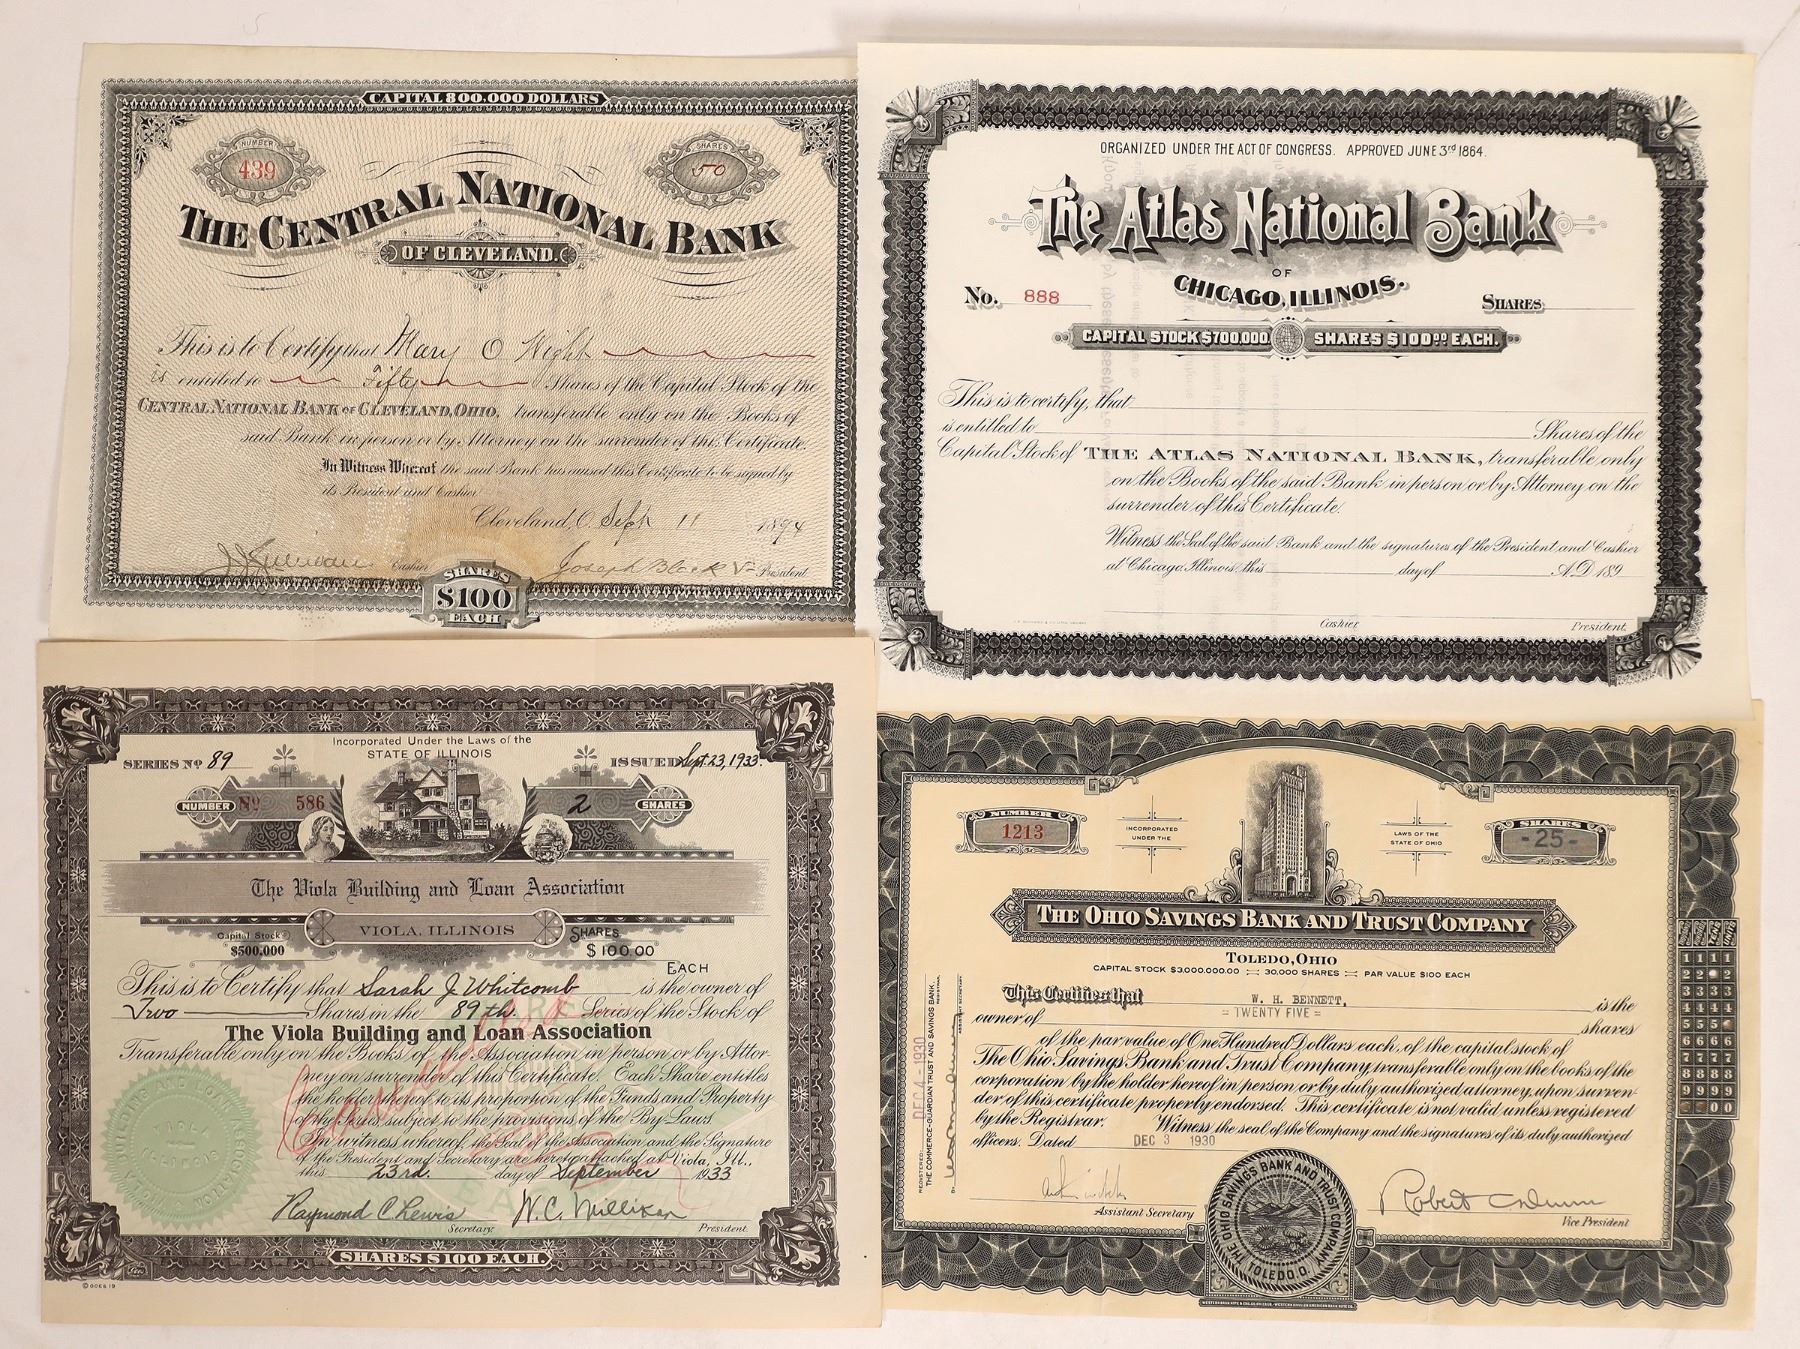 CAPITAL 800,000 DOLLARS
NUMBER
439
SHARES
50
THE CENTRAL NATIONAL BANK
OF CLEVELAND.
This is to Certify that Mary O. Kight
is entitled to Fifty Shares of the Capital Stock of the
CENTRAL NATIONAL BANK OF CLEVELAND, OHIO, transferable only on the Books of
said Bank in person or by Attorney on the surrender of this Certificate.
In Witness Whereof the said Bank has caused this Certificate to be signed by
its President and Cashier
Cleveland, O. Sept 11 1894
Cashier
Joseph Black V. President
SHARES
$100
EACH
ORGANIZED UNDER THE ACT OF CONGRESS. APPROVED JUNE 3rd 1864.
The Atlas National Bank
OF
CHICAGO, ILLINOIS.
No. 888
SHARES
CAPITAL STOCK $700,000. SHARES $100.00 EACH.
This is to certify, that
is entitled to Shares of the
Capital Stock of THE ATLAS NATIONAL BANK, transferable only
on the Books of the said Bank in person or by Attorney on the
surrender of this Certificate.
Witness the Seal of the said Bank and the signatures of the President and Cashier
at Chicago, Illinois, this day of A.D. 189
Cashier.
President.
Incorporated Under the Laws of the
STATE OF ILLINOIS
SERIES No 89
ISSUED Sept. 23, 1933.
NUMBER No 586
2 SHARES
The Viola Building and Loan Association
VIOLA, ILLINOIS
Capital Stock
$500,000
SHARES
$100.00
EACH
This is to Certify that Sarah J. Whitcomb is the owner of
Two Shares in the 89th Series of the Stock of
The Viola Building and Loan Association
Transferable only on the Books of the Association, in person or by Attor-
ney on surrender of this Certificate. Each Share entitles
the holder hereof to its proportion of the Funds and Property
of the Ass'n, subject to the provisions of the By-Laws
In witness whereof, the Seal of the Association and the Signature
of the President and Secretary are hereto attached at Viola, Ill.,
this 23rd. day of September 1933
Cancelled
Raymond C. Lewis
Secretary
W. C. Milliken
President.
SHARES $100 EACH.
NUMBER
1213
INCORPORATED
UNDER THE
LAWS OF THE
STATE OF OHIO
SHARES
-25-
THE OHIO SAVINGS BANK AND TRUST COMPANY
TOLEDO, OHIO
CAPITAL STOCK $3,000,000.00 30,000 SHARES PAR VALUE $100 EACH
This Certifies that W. H. BENNETT, is the
owner of = TWENTY FIVE = shares
of the par value of One Hundred Dollars each, of the capital stock of
The Ohio Savings Bank and Trust Company, transferable only on the books of the
corporation by the holder hereof in person or by duly authorized attorney, upon surren-
der of this certificate properly endorsed. This certificate is not valid unless registered
by the Registrar. Witness the seal of the Company and the signatures of its duly authorized
officers. Dated DEC 3 1930
REGISTERED: DEC 4 - 1930
THE COMMERCE-GUARDIAN TRUST AND SAVINGS BANK,
REGISTRAR.
ASSISTANT SECRETARY.
Assistant Secretary
Vice President
THE OHIO SAVINGS BANK AND TRUST COMPANY
TOLEDO, O.